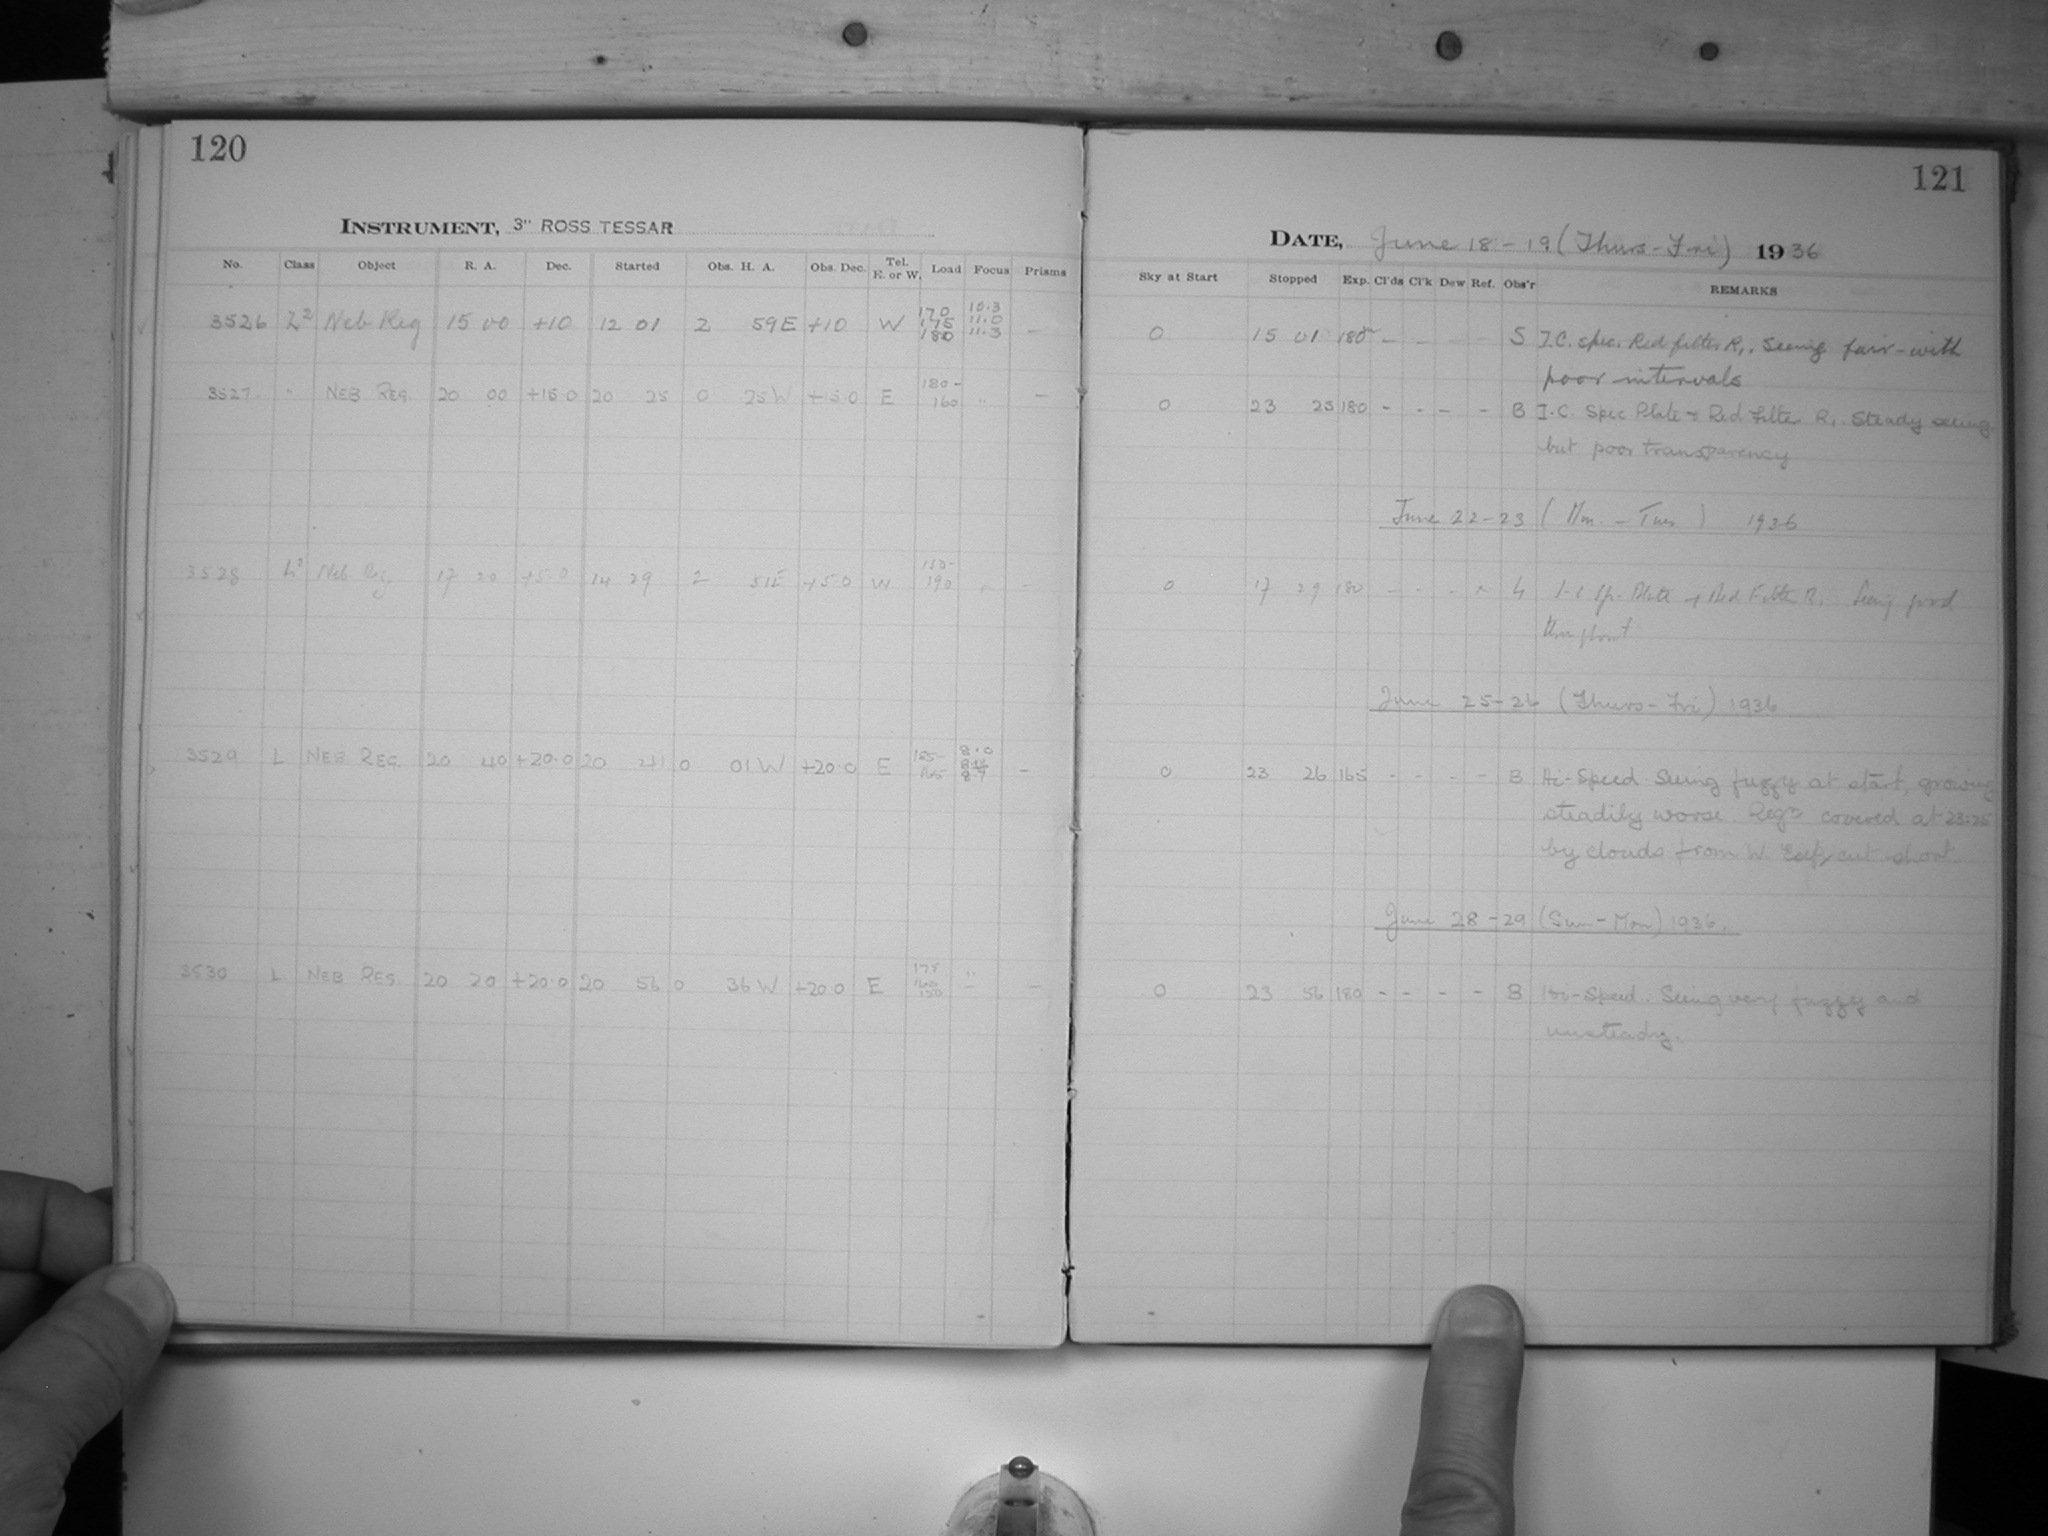 120
INSTRUMENT, 3" ROSS TESSAR
No. Class Object R. A. Dec. Started Obs. H. A. Obs. Dec. Tel. E. or W. Load Focus Prisms
3526 L² Neb Reg 15 00 +10 12 01 2 59E +10 W 170 175 180 10.3 11.0 11.3 —
3527 " NEB REG. 20 00 +15.0 20 25 0 25W +15.0 E 180- 160 " —
3528 L² Neb. Reg. 17 20 +5.0 14 29 2 51E +5.0 W 190 —
3529 L NEB REG. 20 40 +20.0 20 41 0 01W +20.0 E 185- 165 8.0 8.9 —
3530 L NEB REG. 20 20 +20.0 20 56 0 36W +20.0 E 175 160 150 " —
121
DATE, June 18-19 (Thurs-Fri) 1936
Sky at Start Stopped Exp. Cl'ds Cl'k Dew Ref. Obs'r REMARKS
0 15 01 180 - - - - S I.C. spec. Red filter R₁. Seeing fair-with
poor intervals
0 23 25 180 - - - - B I-C. Spec Plate & Red Filter R₁. Steady seeing
but poor transparency
June 22-23 (Mon. - Tues) 1936
0 17 29 180 - - - Plate + Red Filter R. Seeing good
throughout
June 25-26 (Thurs-Fri) 1936
0 23 26 165 - - - - B Hi-Speed Seeing fuzzy at start, growing
steadily worse. Regn covered at 23:25
by clouds from W. Exp. cut short
June 28-29 (Sun-Mon) 1936.
0 23 56 180 - - - - B Hi-Speed. Seeing very fuzzy and
unsteady.